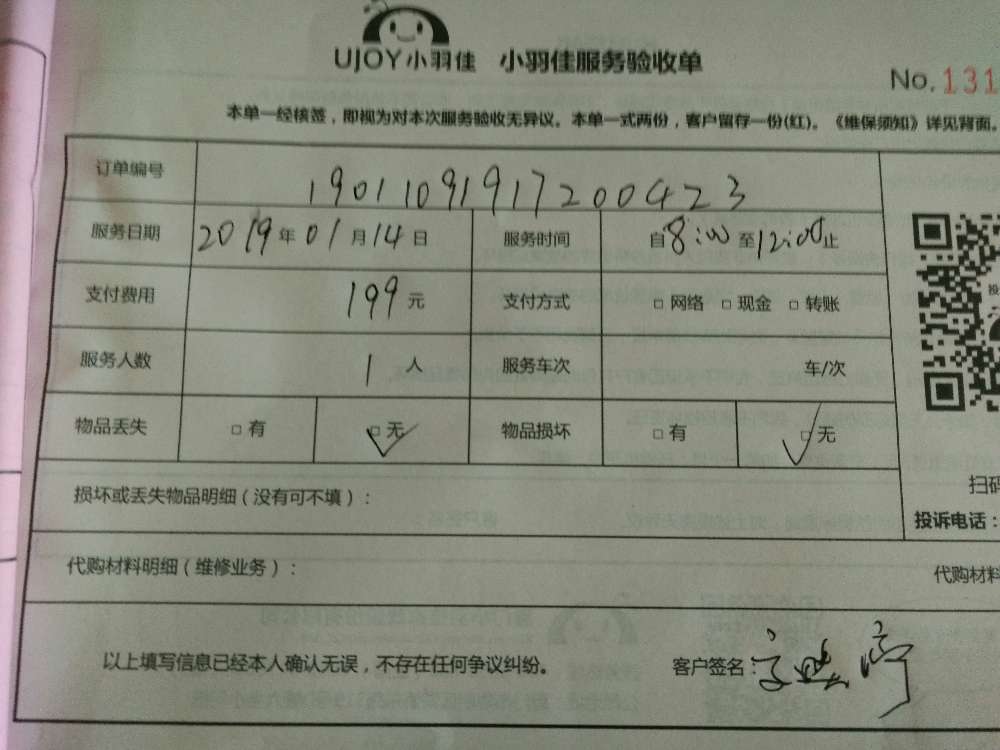 UJOY小羽佳 小羽佳服务验收单
No. 131
本单一经核签，即视为对本次服务验收无异议。本单一式两份，客户留存一份(红)。《维保须知》详见背面。
订单编号 19011091917200423
服务日期 2019年01月14日 服务时间 自8:00至12:00止
支付费用 199元 支付方式 □网络 □现金 □转账
服务人数 1人 服务车次 车/次
物品丢失 □有 □无 物品损坏 □有 □无
损坏或丢失物品明细（没有可不填）：
扫码
投诉电话：
代购材料明细（维修业务）： 代购材料
以上填写信息已经本人确认无误，不存在任何争议纠纷。 客户签名：